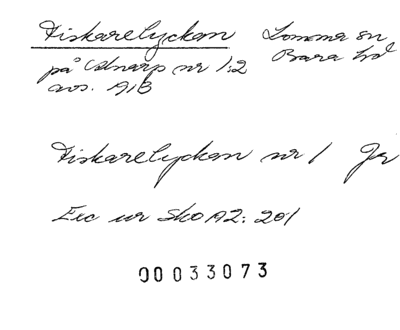 Fiskarelyckan Lomma sn
på Alnarp nr 1:2 Bara hd
avs. 1913
Fiskarelyckan nr 1 Jr
Exc ur SkoA2: 201
00033073